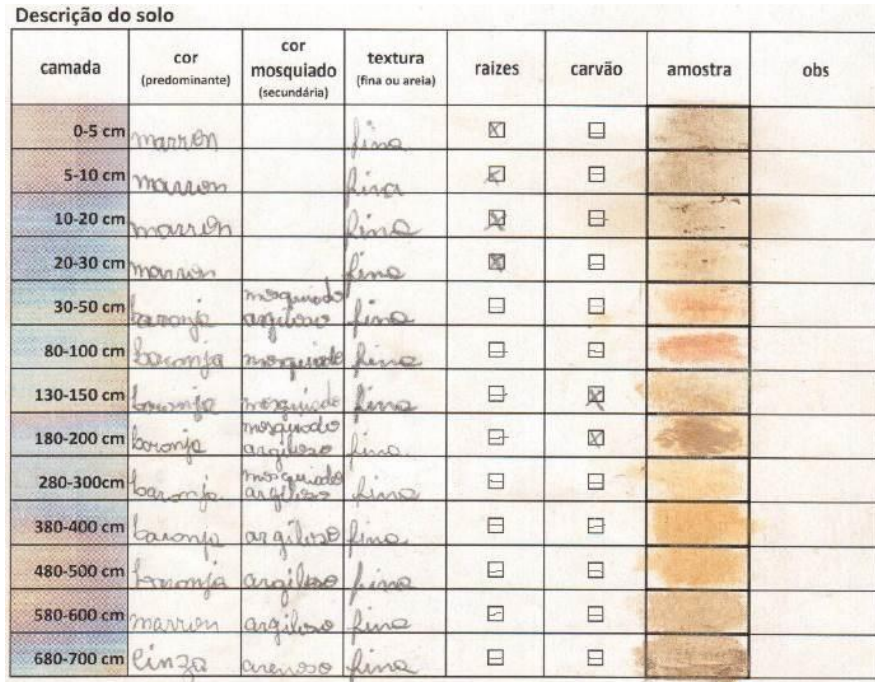 Descrição do solo
camada cor (predominante) cor mosquiado (secundária) textura (fina ou areia) raizes carvão amostra obs
0-5 cm marron fina
5-10 cm marron fina
10-20 cm marron fina
20-30 cm marron fina
30-50 cm laronja mosquiado argiloso fina
80-100 cm laronja mosquiado fina
130-150 cm laronja mosquiado fina
180-200 cm laronja mosquiado argiloso fina
280-300cm laronja mosquiado argiloso fina
380-400 cm laronja argiloso fina
480-500 cm laronja argiloso fina
580-600 cm marron argiloso fina
680-700 cm cinza arenoso fina